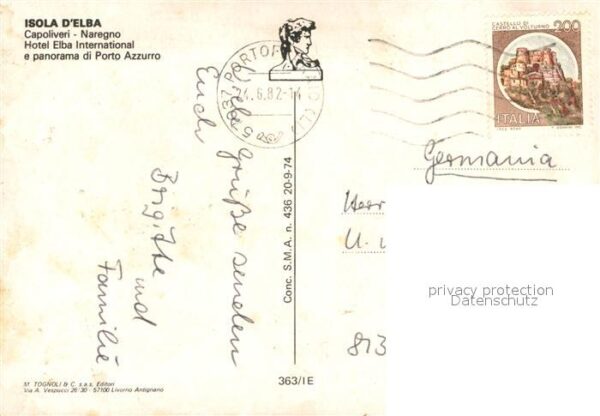 ISOLA D'ELBA
Capoliveri - Naregno
Hotel Elba International
e panorama di Porto Azzurro
CASTELLO DI
CERRO AL VOLTURNO
200
ITALIA
24.6.82-14
Germania
Grüße senden
Euch
Brigitte und
Familie
Herr
U.
813
Conc. S.M.A. n. 436 20-9-74
privacy protection
Datenschutz
M. TOGNOLI & C. s.a.s. Editori
Via A. Vespucci 26/30 - 57100 Livorno Antignano
363/IE